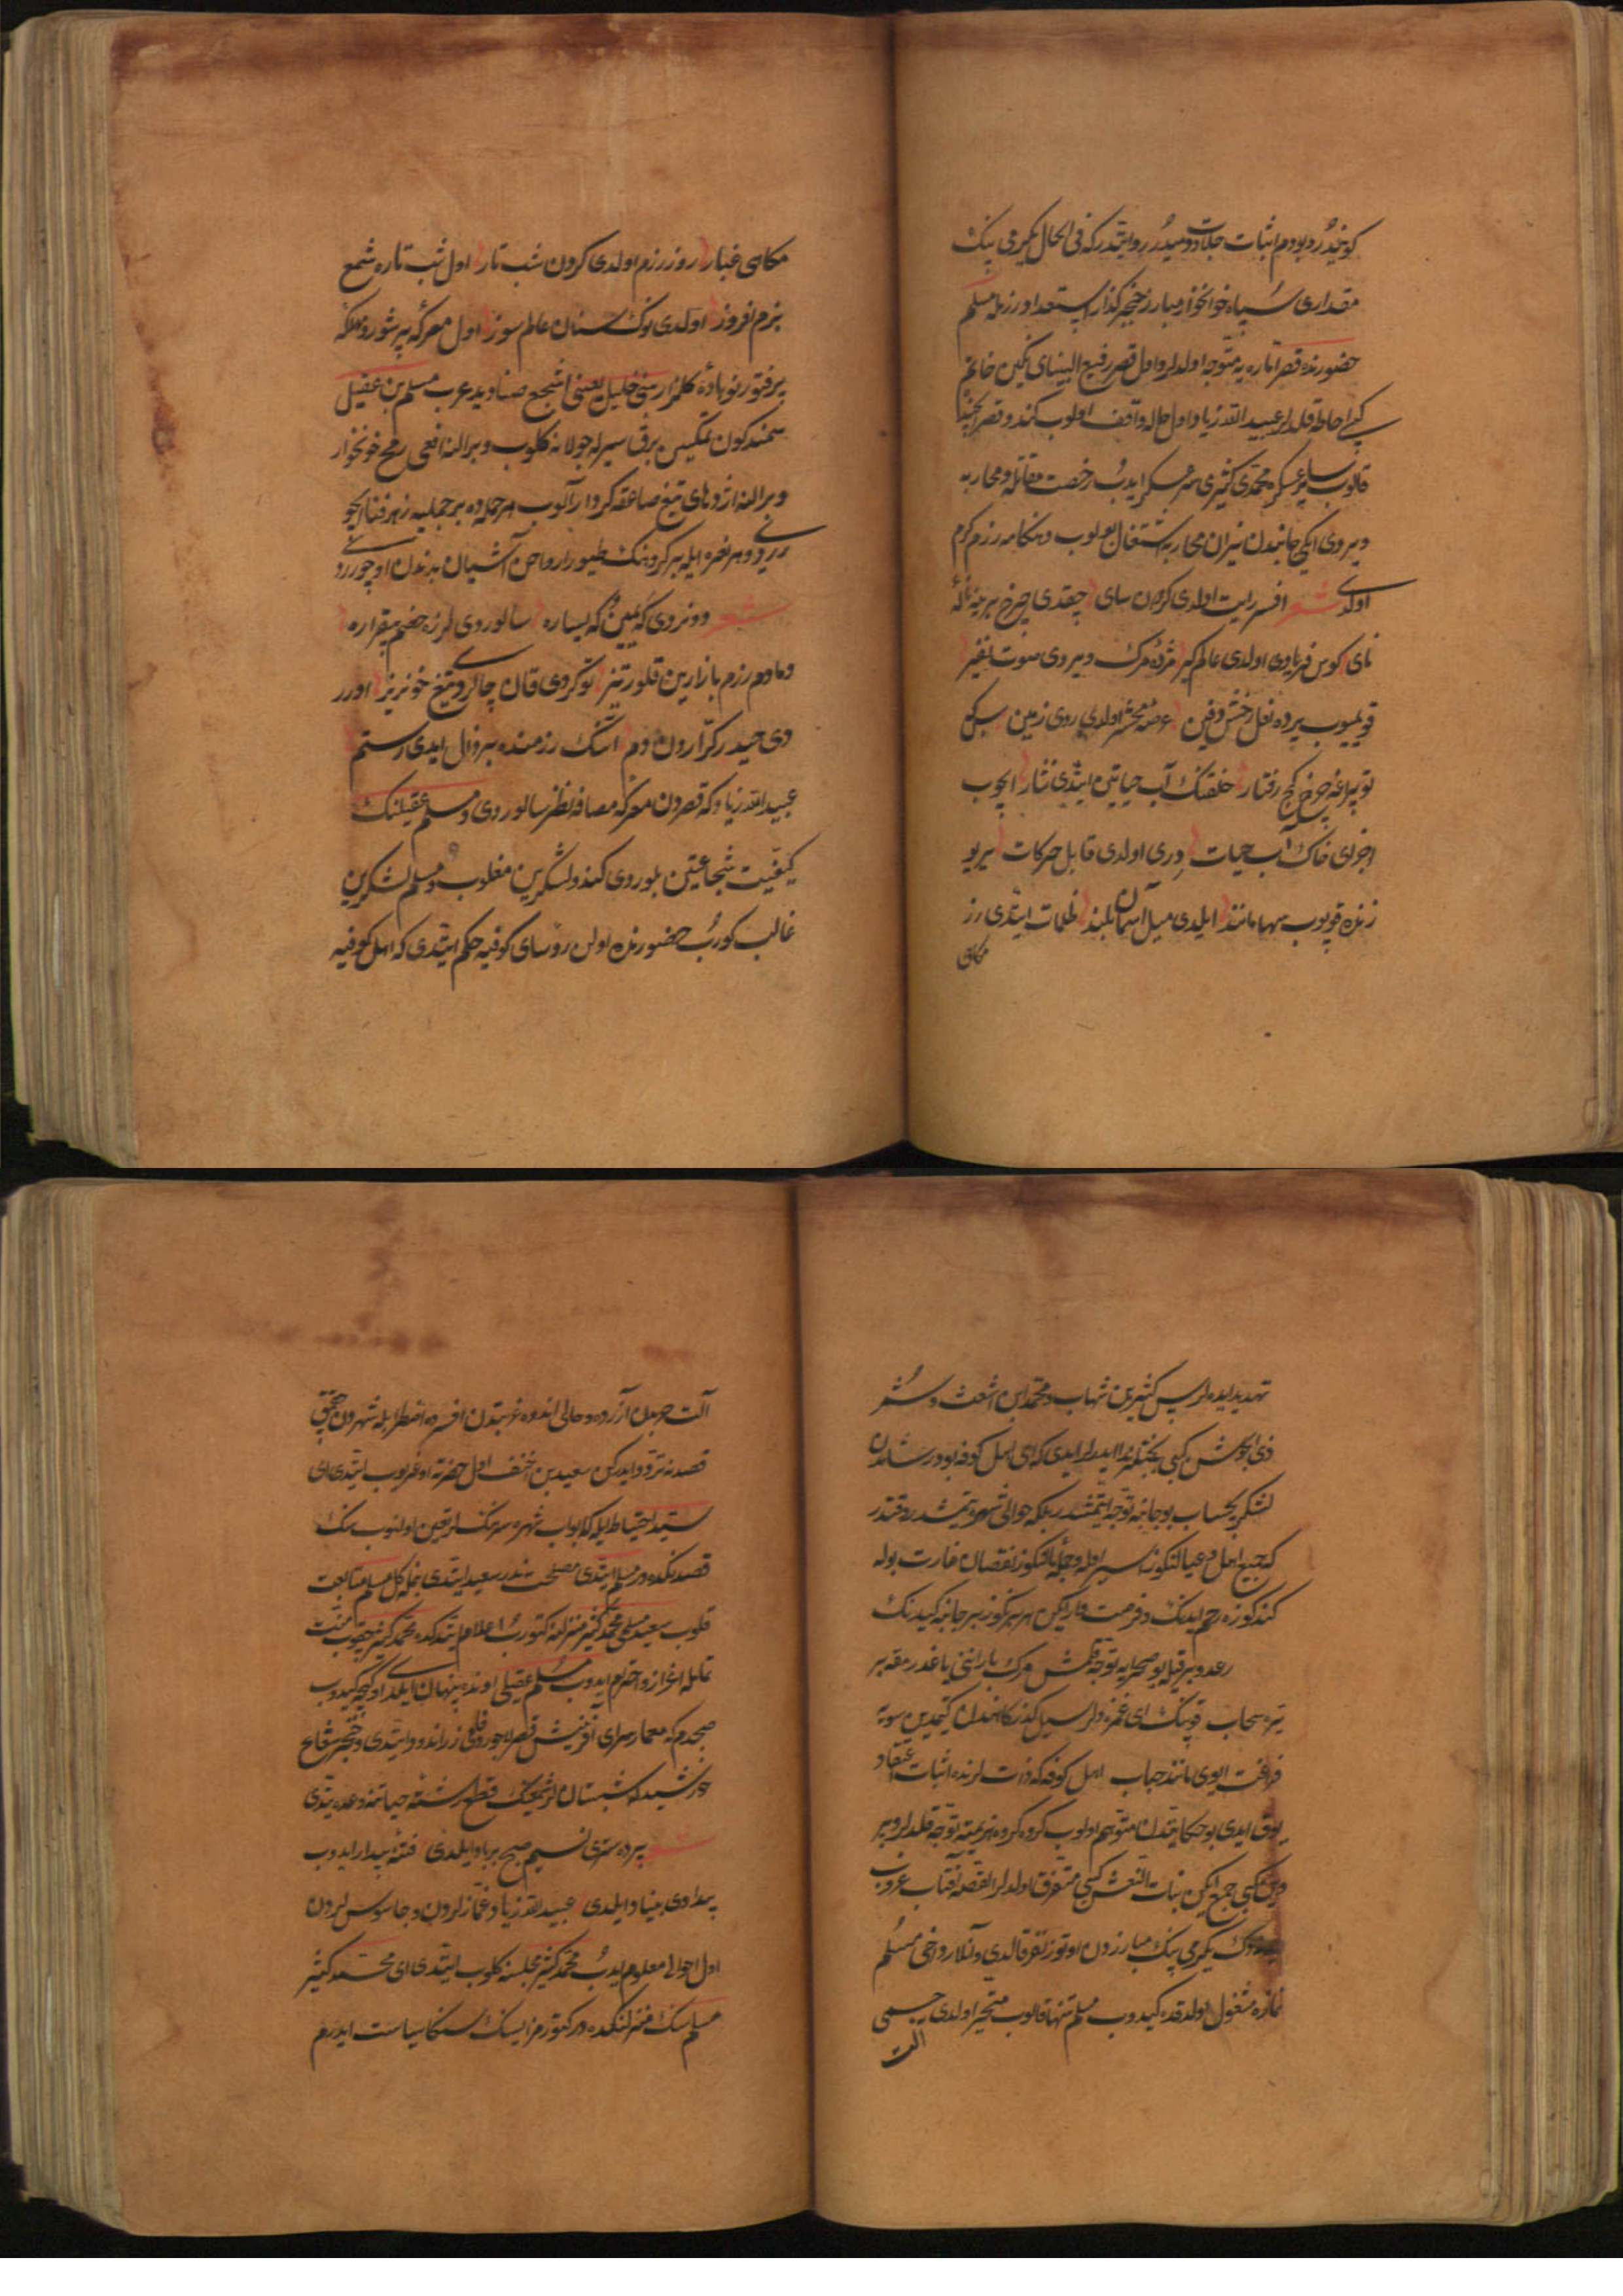 کونیدر و بودم اثبات جلادت دمیدر روایتدر که فی الحال یکرمی بیک
مقداری سپاه خوانخوار مبارز خنجر کذار مستعد اوررزله مسلم
حضورنده قصر اماره یه متوجه اولدیلر و اول قصر رفیع البنیای نکین خاتم
کبی احاطه قلدیلر عبید الله زیاد اول حاله واقف اولوب کندو قصر ایچنده
قالوب سایر عسکره محمدی کثیری سرعسکر ایدوب رخصت مقاتله و محاربه
ویردی ایکی جانبدن نیران محاربه اشتغال بولوب و هنکامه رزم کرم
اولدی شعر افسر رایت اولدی کردون سای چقدی چرخ برینه ناله
نای کوس فریادی اولدی عالم کیر مژده مرک ویردی صوت نفیر
قویمیوب یرده نعل رخش دفین عرصه محشر اولدی روی زمین
توپراغه چرخ کج رفتار خلقنک آب حیاتین ایتدی نثار ایچوب
اجزای خاک آب حیات دری اولدی قابل حرکات یر یوزنده
قوپوب مانند ایلدی میل آسمان بلند ظلمات ایتدی رزم
مکاهی
مکاهی غبار روز رزم اولدی کردون شب تار اول شب تاره شمع
بزم افروز اولدی نوک سنان عالم سوز اول معرکه پر شور و مهلکه
پر فتور نوباده کلزار بنی خلیل یعنی اشجع صنادید عرب مسلم بن عقیل
سمند کون تمکین برق سیرله جولانه کلوب و بر النه افعی رمح خونخوار
و بر النه اژدهای تیغ صاعقه کردار آلوب هر حمله ده بر جملیه زهر فنا ایچو
رردی و هر نعره ایله بر کروهنک طیور ارواحن آشیان بدندن اوچوررد
شعر دوندردی که یمین که یساره سالوردی لرزه خصم بیقراره
دمادم رزم بازارین قلوردی تیز توکردی قان چالردی تیغ خونریز اورر
دی حیدر کراردن دم انک رزمنده بر زال ایدی رستم
عبید الله زیاد که قصردن معرکه مصافه نظر سالوردی و مسلم عقیلنک
کیفیت شجاعتین بلوردی کندو لشکرین مغلوب و مسلم لشکرین
غالب کورب حضورنده اولن روسای کوفیه حکم ایتدی که اهل کوفیه
تهدید ایده لر پس کثیر بن شهاب و محمد ابن اشعث و شمر
ذی الجوشن کبی بدبختلر ندا ایدرلر ایدی که ای اهل کوفه بودر شامدن
لشکر بیحساب بو جانبه توجه ایتمشدر بلکه حوالی شهره یتمشدر وقتدر
که جمیع اهل و عیالنکوز اسیر اوله و جمله مالنکوز نقصان غارت بوله
کندکوزه رحم ایدنک و فرصت وارایکن هر برنکوز بر جانبه کیدنک
رعد و برقیله بو صحرایه توجه قلمش مرک بارانینی یاغدرمغه بر
تیره سحاب قوپنک ای غمزده لر سیل کذرکاهندن یتمدین سویه
فراغت ایوی مانند حباب اهل کوفه که ذات لرنده اثبات اعتقاد
یوق ایدی بو حکایتدن متوهم اولوب کروه کروه هزیمته توجه قلدیلر و پر
وین کبی جمع ایکن بنات النعش کبی متفرق اولدیلر القصه آفتاب غروب
یکرمی بیک مبارزدن اوتوز نفر قالدی و آنلار داخی مسلم
نمازه مشغول اولدقده کیدوب مسلم تنها قالوب متحیر اولدی جسمی
آلت
آلت حربدن آزرده و حالی اندوه غربتدن افسرده اضطرابله شهردن چقمق
قصدنه تردد ایدرکن سعید بن احنف اول حضرته اوغریوب ایتدی ای
سید احتیاط ایله که ابواب شهره سرهنکلر تعیین اولنوب سنک
قصدنکده در مسلم ایتدی مصلحت ندر سعید ایتدی بنمله کل مسلم متابعت
قلوب سعید مسلمی محمد کثیر منزلنه کتورب اعلام ایتدکده محمد کثیر چقوب منت
تمامله اعزاز و احترام ایدوب مسلم عقیلی اونده پنهان ایلدی اول کیجه کیدوب
صبحدم که معمار سرای آفرینش قصر لاجوردی فلکی زراندود ایتدی و خنجر شعاع
خورشیده شبستان لر شمعنک قطع رشته حیاتنه وعده یتدی
شعر پرده سرتدی نسیم صبح برباد ایلدی فتنه بیدار ایدوب
بیدادی بنیاد ایلدی عبید الله زیاد غمازلردن و جاسوس لردن
اول احوالی معلوم ایدب محمد کثیر مجلسنه کلوب ایتدی ای محمد کثیر
مسلم سنک منزلنکده در کتورمز ایسنک سنکا سیاست ایدرم